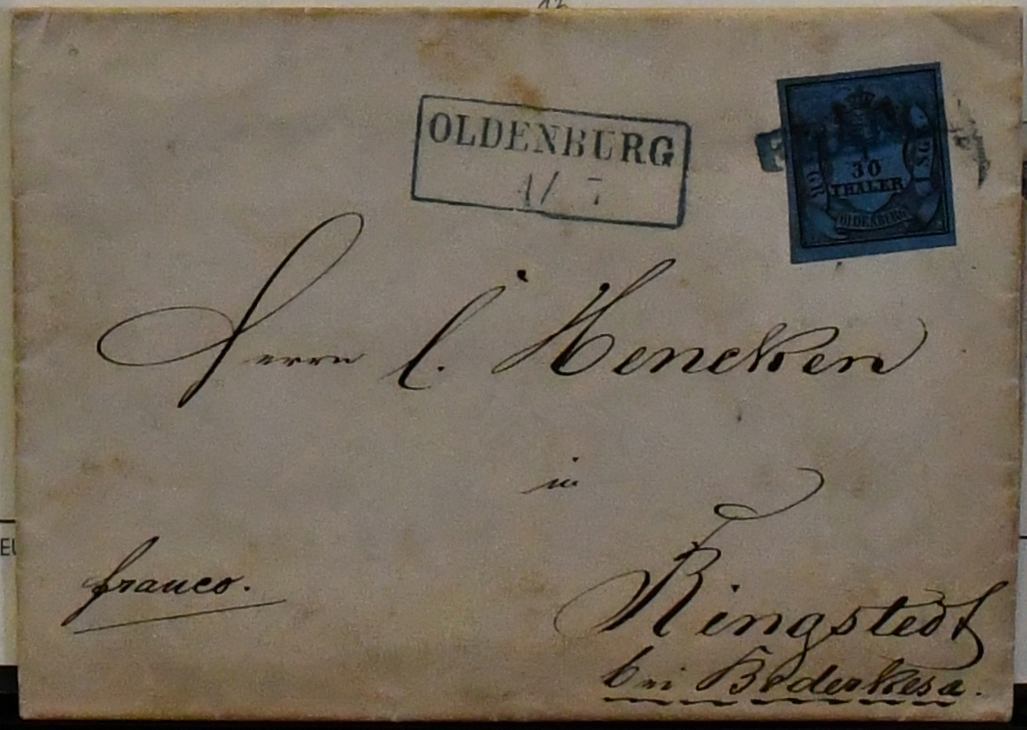 OLDENBURG
1/ 7
30
THALER
OLDENBURG
Herrn C. Hencken
in
franco.
Ringstedt
bei Bederkesa.